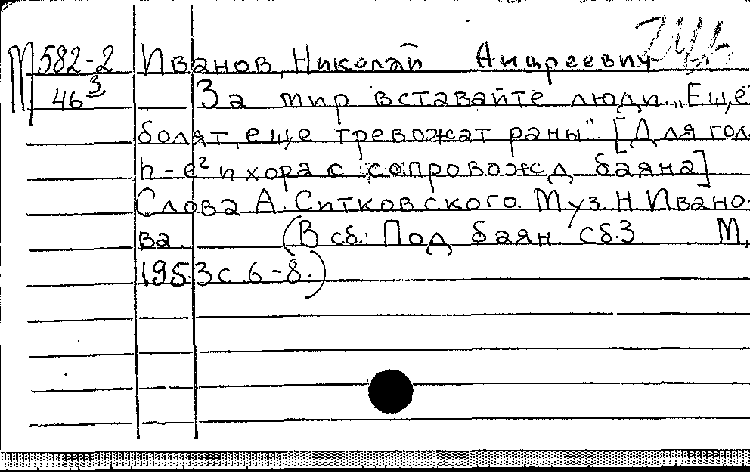 М 582-2 Иванов, Николай Андреевич
46³ За мир вставайте люди. „Еще
болят, еще тревожат раны". [Для гол.
h-e² и хора с сопровожд. баяна]
Слова А. Ситковского. Муз. Н. Ивано-
ва. (В сб.: Под баян. Сб.3 М.,
1953 с. 6-8.)